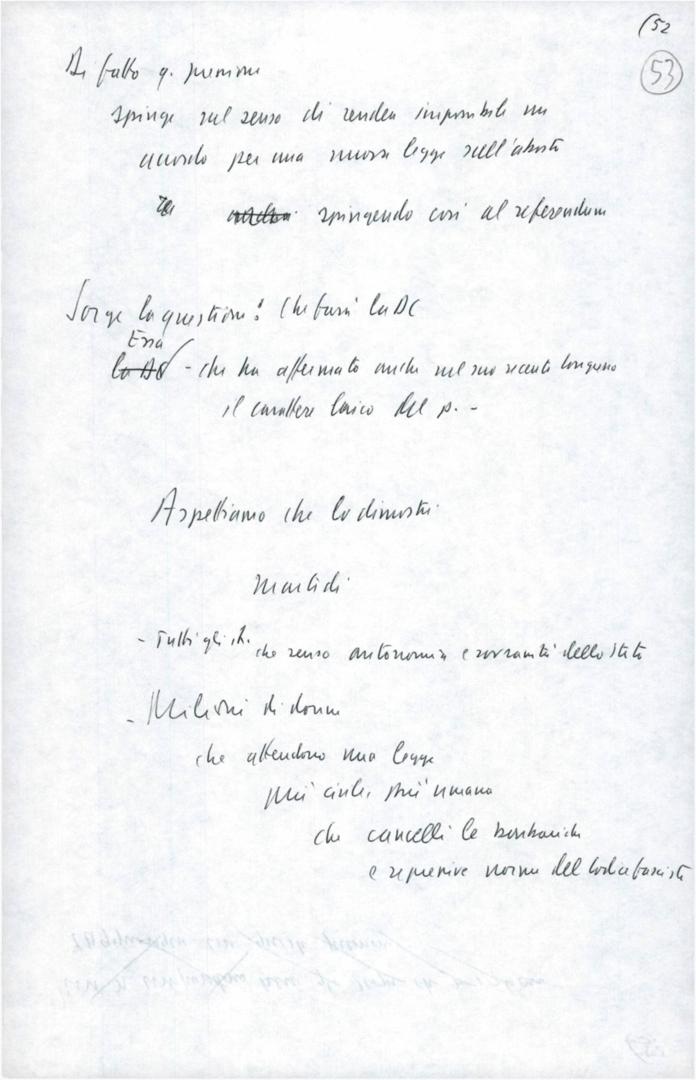 (52
53
Di fatto q. pressione
spinge sul senso di render impossibile un
accordo per una nuova legge sull'aborto
spingendo così al referendum
Sorge la questione: che farà la DC
Essa
la DC - che ha affermato anche nel suo recente congresso
il carattere laico del p. -
Aspettiamo che lo dimostri
- Tutti gli it. che senso autonomia e sovranità dello Stato
- Milioni di donne
che attendono una legge
più civile, più umana
che cancelli le barbariche
e repressive norme del codice fascista